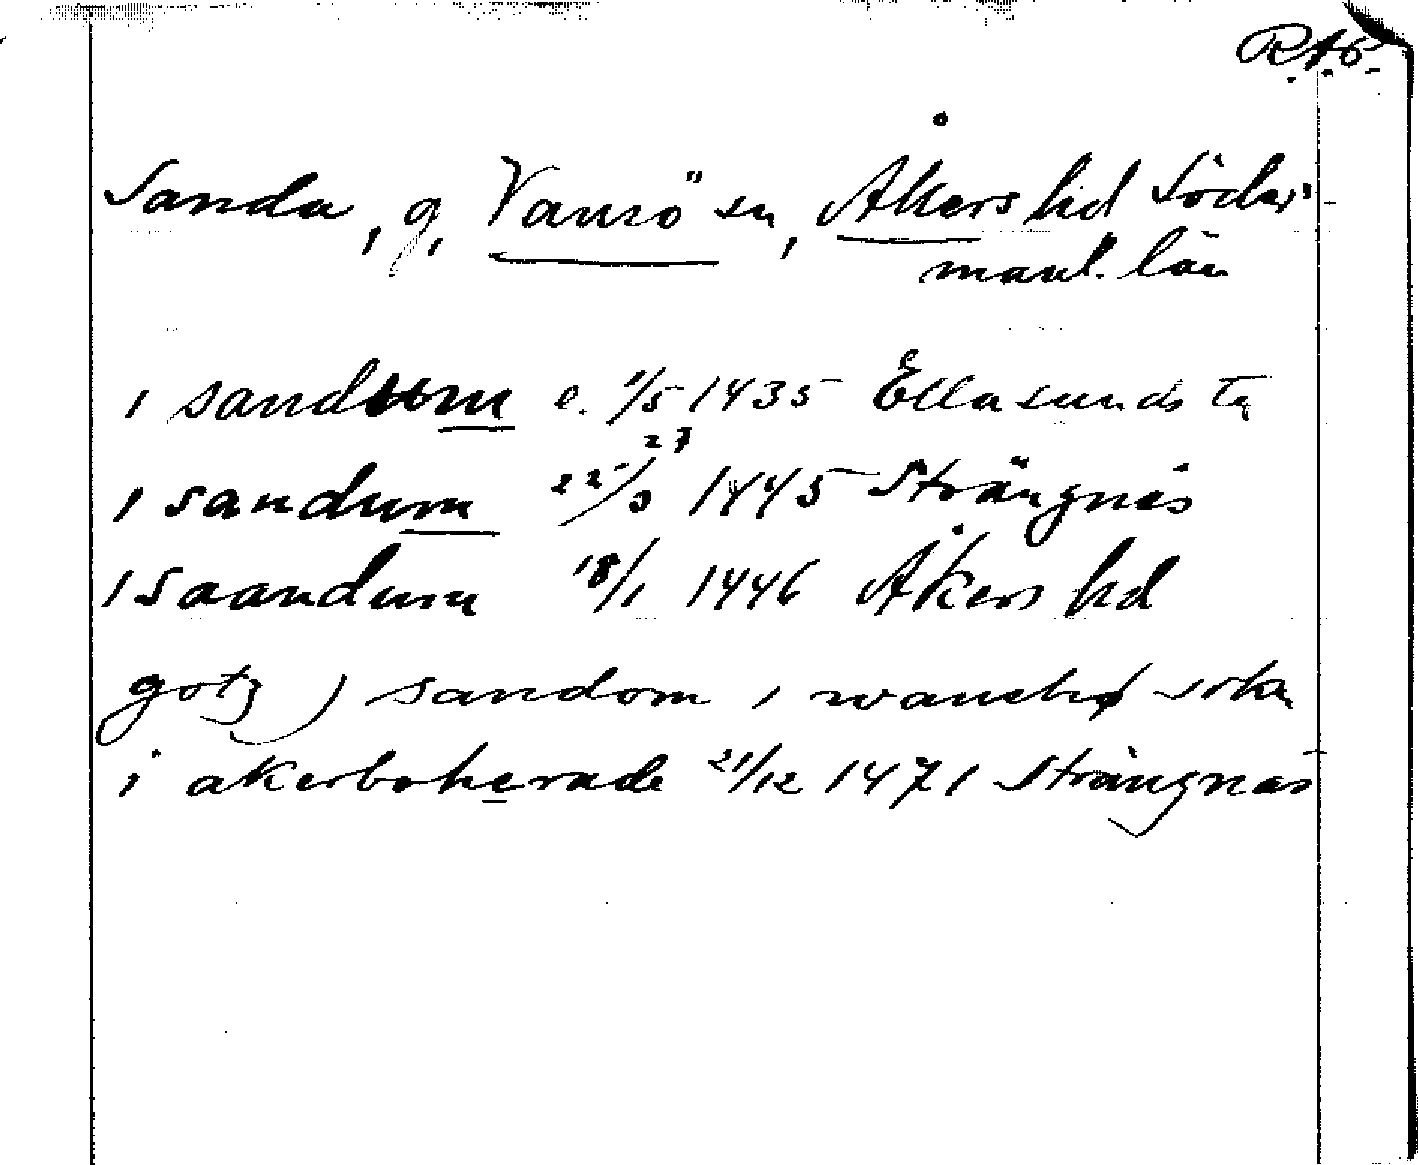 RAö.
Sanda, g, Vansö sn, Åkers hd Söder-
manl. län
i sandum e. 1/5 1435
27
i sandum 22/3 1445 Strängnäs
i saandum 18/1 1446 Åkers hd
gotz ) sandom i wansø sokn
i akerboherade 21/12 1471 Strängnäs